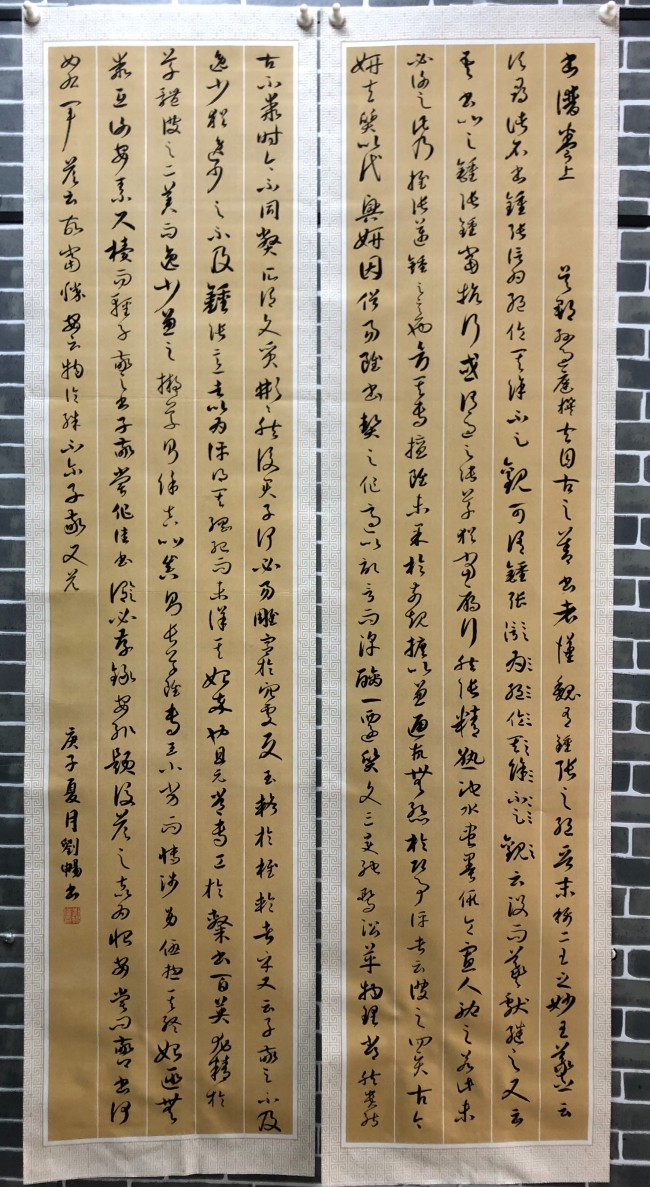 書譜卷上 吳郡孫過庭撰 夫自古之善書者漢魏有鍾張之絕晉末稱二王之妙王羲之云
頃尋諸名書鍾張信為絕倫其餘不足觀可謂鍾張信為絕倫其餘不足觀云沒而羲獻繼之又云
吾書比之鍾張鍾當抗行或謂過之張草猶當雁行然張精熟池水盡墨假令寡人耽之若此未
必謝之此乃推張邁鍾之意也考其專擅雖未果於前規摭以兼通故無慚於即事評者云彼之四賢古今
妍夫質以代興妍因俗易雖書契之作適以記言而淳醨一遷質文三變馳騖沿革物理常然貴能
古不乖時今不同弊所謂文質彬彬然後君子何必易雕宮於穴處反玉輅於椎輪者乎又云子敬之不及
逸少猶逸少之不及鍾張意者以為評得其綱紀而未詳其始卒也且元常專工於隸書百英尤精於
草體彼之二美而逸少兼之擬草則餘真比真則長草雖專工小劣而博涉多優總其終始匪無
乖互謝安素尺牘而輕子敬之書子敬嘗作佳書必存錄安輒題後答之甚為恨安嘗問敬卿書何
如右軍答云故當勝安云物論殊不爾子敬又答
庚子夏月劉暢書